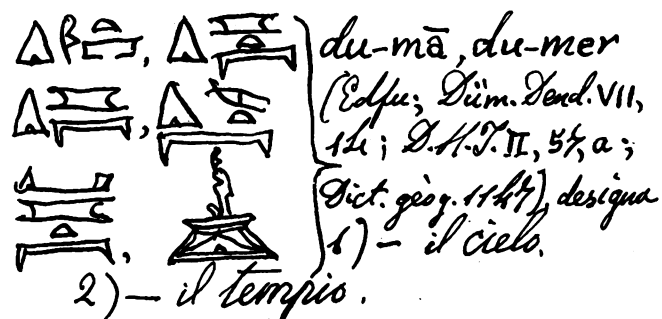 du-mā, du-mer
(Edfu; Düm. Dend. VII,
14; D.H.T. II, 57, a;
Dict. géog. 1147), designa
1) — il cielo.
2) — il tempio.